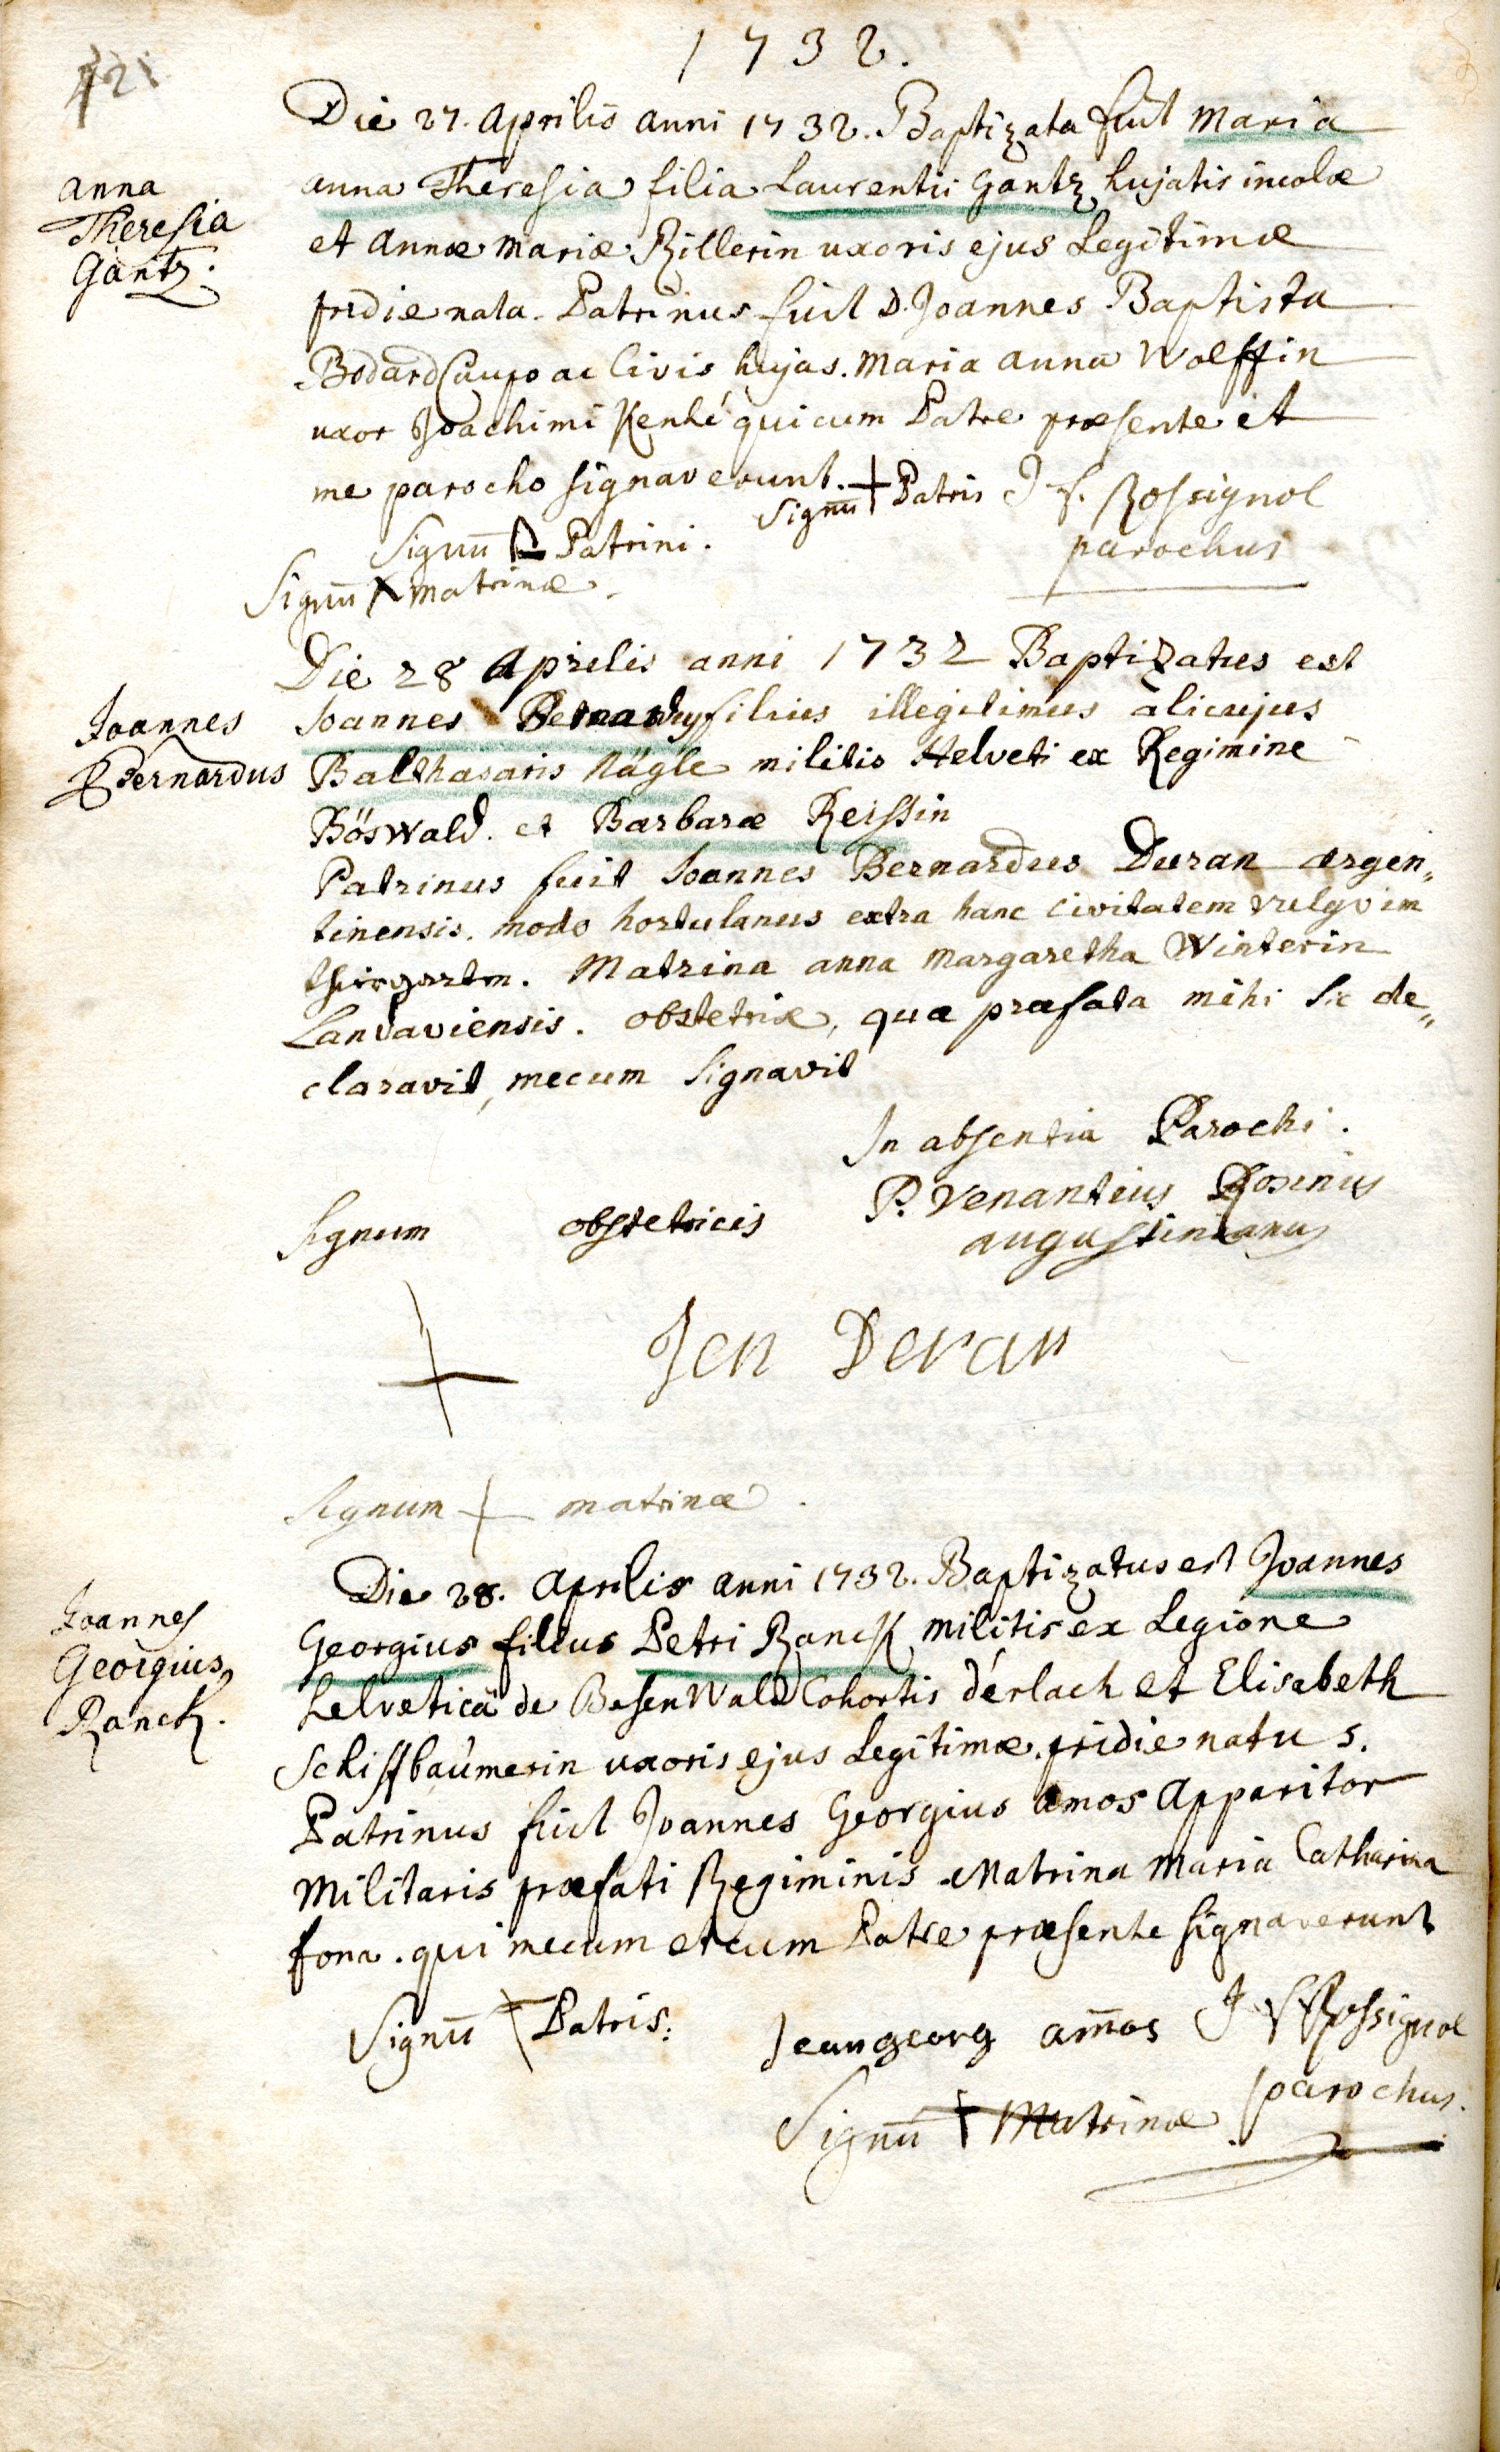 1732.
Die 27. Aprilis anni 1732. Baptizata fuit Maria
anna Theresia filia Laurentii Gantz hujatis incolæ
et Annæ Mariæ Rillerin uxoris ejus Legitimæ
pridie nata. Patrinus fuit D. Joannes Baptista
Bodard Caupo ac Civis hujas. Maria anna Wolffin
uxor Joachimi Kenlé qui cum Patre præsente et
me parocho signaverunt.
Signu̅ + Patris J f. Rossignol
parochus
Signu̅ Patrini.
Signu̅ X Matrinæ.
anna
Theresia
Gantz.
Die 28 Aprilis anni 1732 Baptizatus est
Joannes filius illegitimus alicujus
Balthasaris Nägle militis Helveti ex Regimine
Böswald. et Barbaræ Reissin
Patrinus fuit Joannes Bernardus Duran argen„
tinensis. modo hortulanus extra hanc Civitatem vulgo im
Matrina anna Margaretha Winterin
Landaviensis. obstetrix, quæ præfata mihi sic de„
claravit, mecum signavit
Joannes
Bernardus
In absentia Parochi.
P. Venantius
augustinianus
Signum obstetricis
+
Jen Deran
Signum + matrinæ.
Die 28. Aprilis anni 1732. Baptizatus est Joannes
Georgius filius Petri Ranck militis ex Legione
helvetica de Besenwald Cohortis d'érlach et Elisabeth
Schiffbaúmerin uxoris ejus Legitimæ. pridie natus.
Patrinus fuit Joannes Georgius amos Apparitor
Militaris præfati Regiminis. Matrina Maria Catharina
fona. qui mecum et cum Patre præsente signaverunt
Joannes
Georgius
Ranck.
Signu̅ Patris.
Jeangeorg am̅os J f Rossignol
parochus.
Signu̅ + Matrinæ